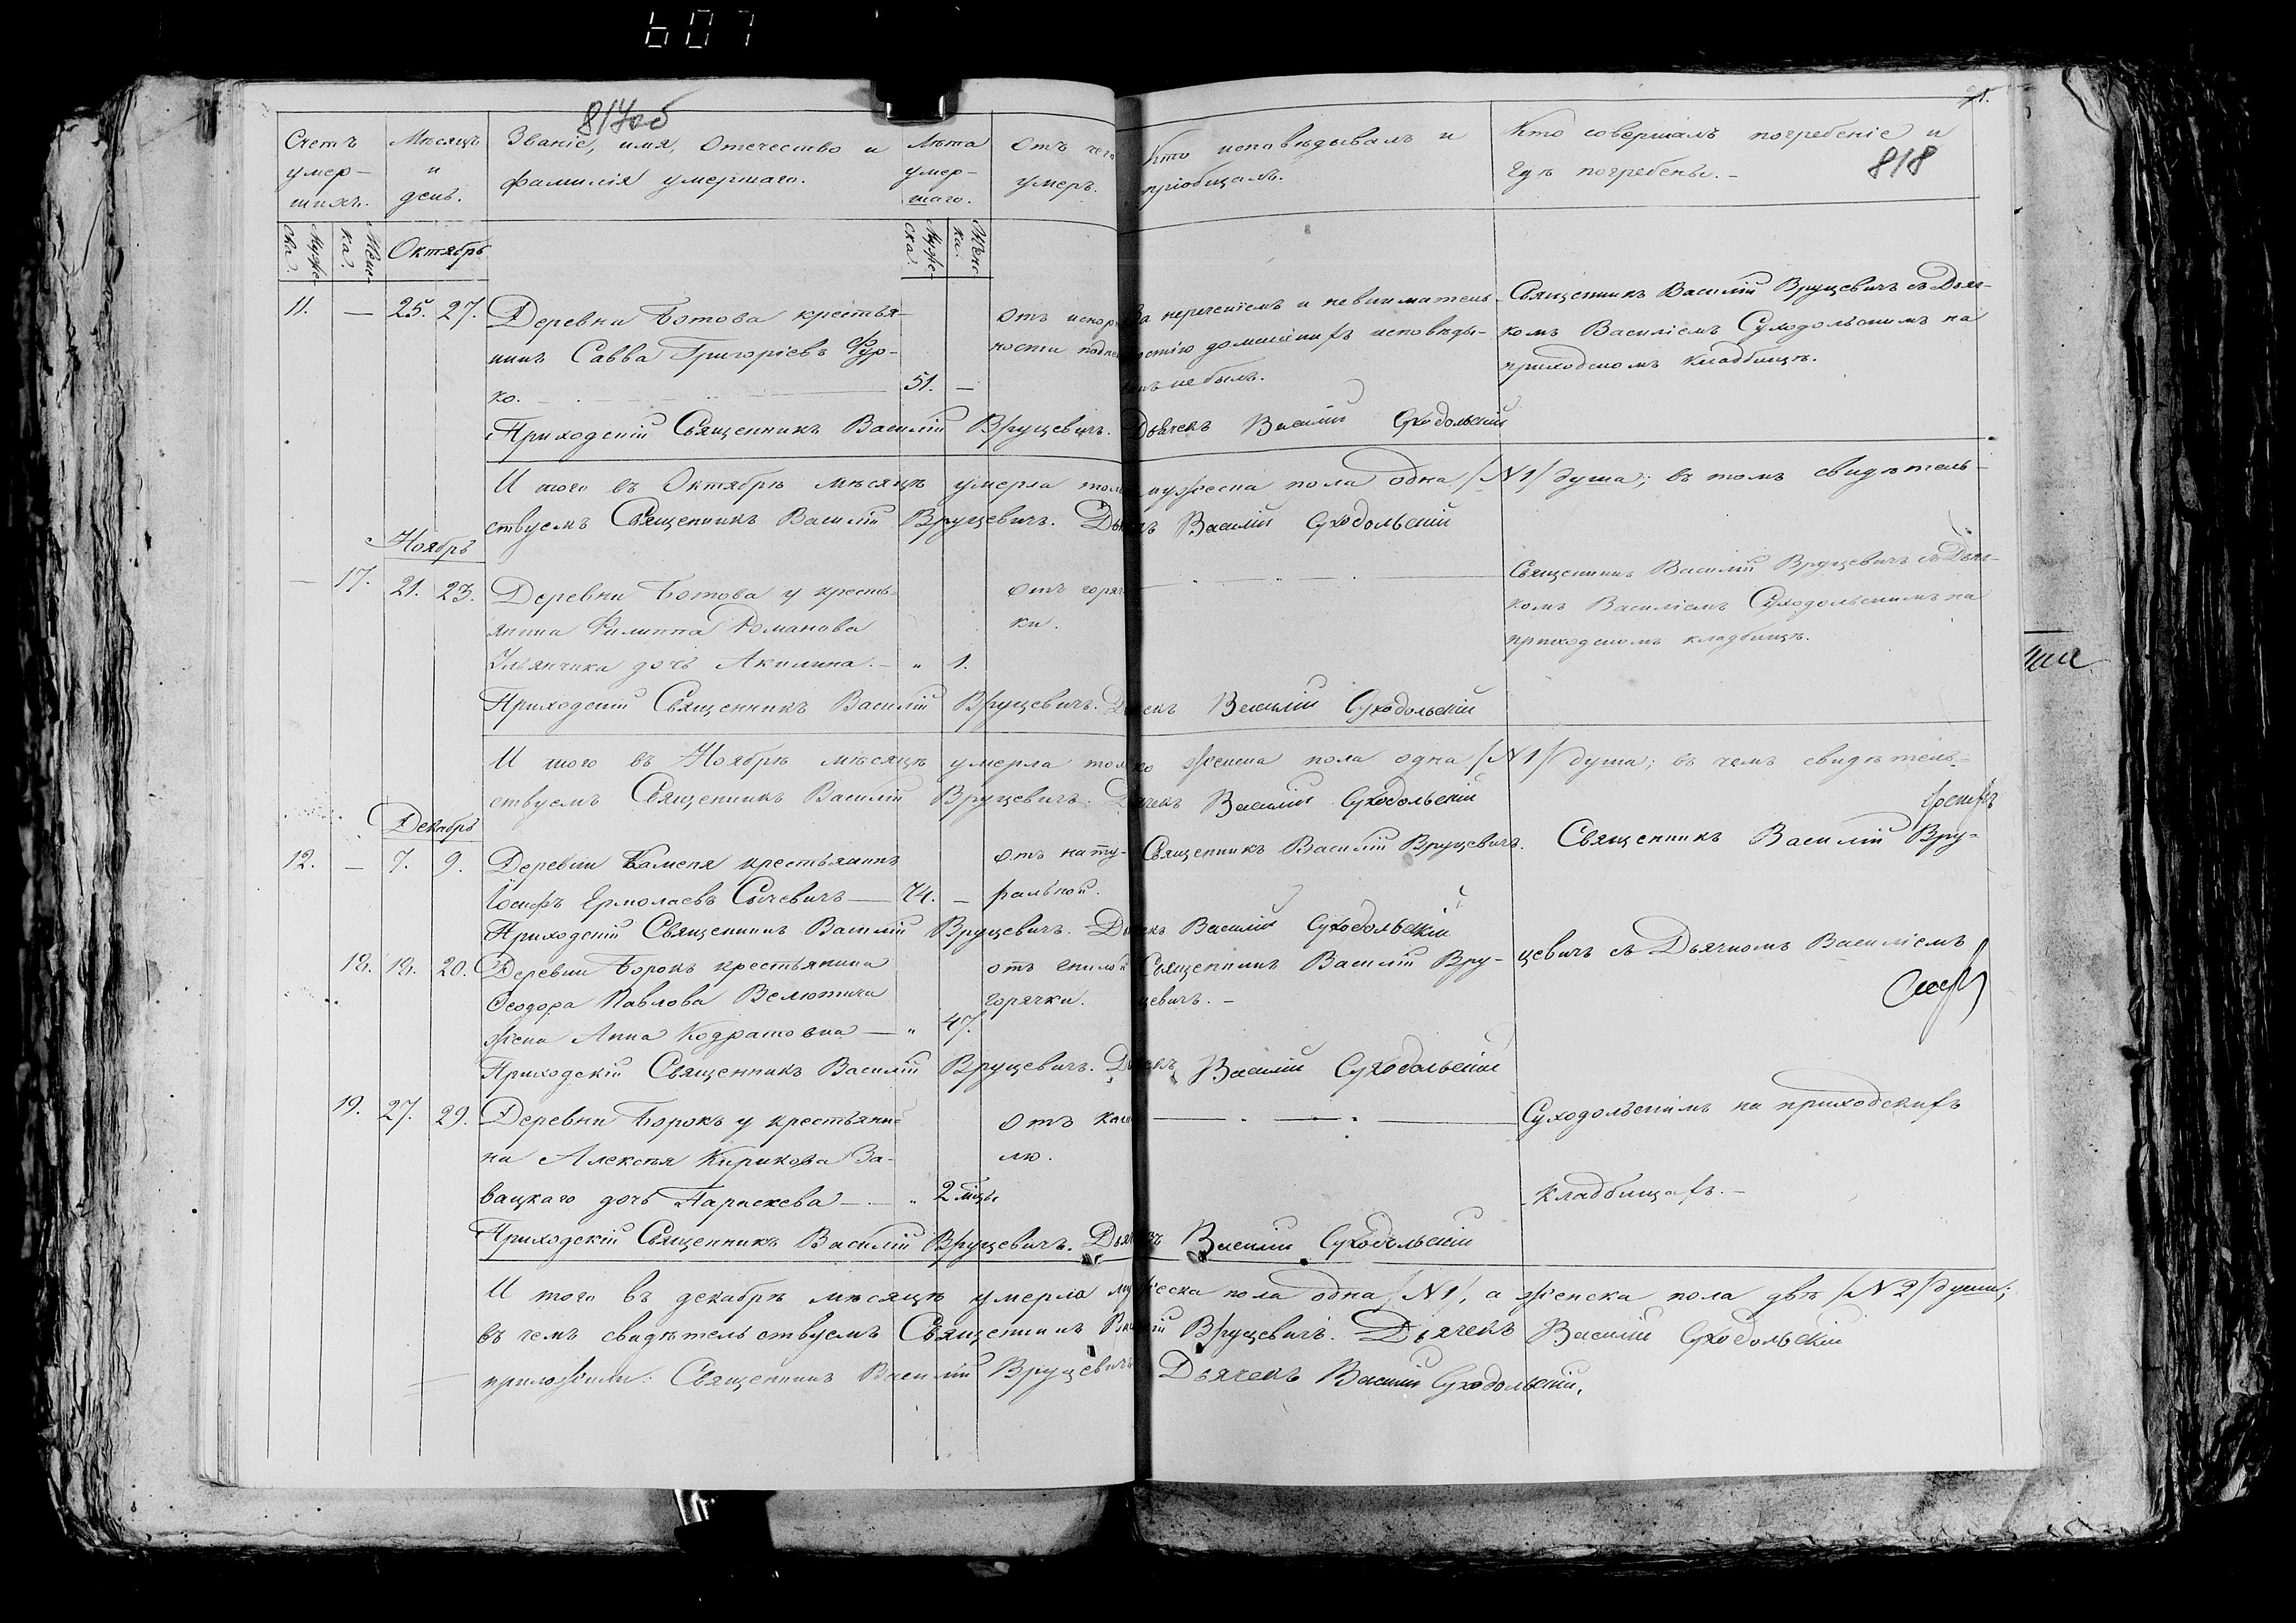 607
817об
21.
818
Счетъ умер-шихъ.
Мѣсяцъ и день.
Званіе, имя, отечество и фамилія умершаго.
Лѣта умер-шаго.
Отъ чего умеръ.
Кто исповѣдывалъ и пріобщалъ.
Кто совершалъ погребеніе и гдѣ погребены.
Муже-ска.
Жен-ка.
Октябрь
Муже-ска.
Женс-ка.
11. — 25. 27. Деревни Ботова крестья-
нинъ Савва Григоріевъ Фур-
ко. — 51. —
За нерченіемъ и невниматель-
ностію домашнихъ исповѣды-
не былъ.
Священникъ Василій Вруцевичъ съ Дьяч-
комъ Василіемъ Суходольскимъ на
приходскомъ кладбищѣ.
Приходскій Священникъ Василій Вруцевичъ. Дьячекъ Василій Суходольскій
И того въ Октябрѣ мѣсяцѣ умерла мужеска пола одна /№1/ душа; въ томъ свидѣтель-
ствуемъ Священникъ Василій Вруцевичъ. Дьячекъ Василій Суходольскій
Ноябрь
— 17. 21. 23. Деревни Ботова у кресть-
янина Филиппа Романова
Ульянчика дочь Акилина. — " 1.
отъ горяч
ки.
Священникъ Василій Вруцевичъ съ Дьяч-
комъ Василіемъ Суходольскимъ на
приходскомъ кладбищѣ.
Приходскій Священникъ Василій Вруцевичъ. Дьячекъ Василій Суходольскій
И того въ Ноябрѣ мѣсяцѣ умерла только женска пола одна /№1/ душа; въ чемъ свидѣтель-
ствуемъ Священникъ Василій Вруцевичъ. Дьячекъ Василій Суходольскій
Декабрь
12. — 7. 9. Деревни Каменя крестьянинъ
Іосифъ Ермолаевъ Сычевичъ — 74. —
отъ нату-
ральной.
Священникъ Василій Вруцевичъ.
Священникъ Василій Вру-
Приходскій Священникъ Василій Вруцевичъ. Дьячекъ Василій Суходольскій
18. 18. 20. Деревни Борокъ крестьянина
Ѳеодора Павлова Велютича
жена Анна Кодратовна — " 47.
отъ гнилой
горячки.
Священникъ Василій Вру-
цевичъ. —
цевичъ съ Дьячкомъ Василіемъ
Приходскій Священникъ Василій Вруцевичъ. Дьячекъ Василій Суходольскій
19. 27. 29. Деревни Борокъ у крестьяни-
на Алексѣя Кирикова За-
вацкаго дочь Параскева — " 2 мѣцы
отъ каш
лю.
Суходольскимъ на приходскихъ
кладбищахъ. —
Приходскій Священникъ Василій Вруцевичъ. Дьячекъ Василій Суходольскій
И того въ декабрѣ мѣсяцѣ умерла мужеска пола одна /№1/, а женска пола двѣ /№2/ души;
въ чемъ свидѣтельствуемъ Священникъ Василій Вруцевичъ. Дьячекъ Василій Суходольскій
приложили: Священникъ Василій Вруцевичъ Дьячекъ Василій Суходольскій.